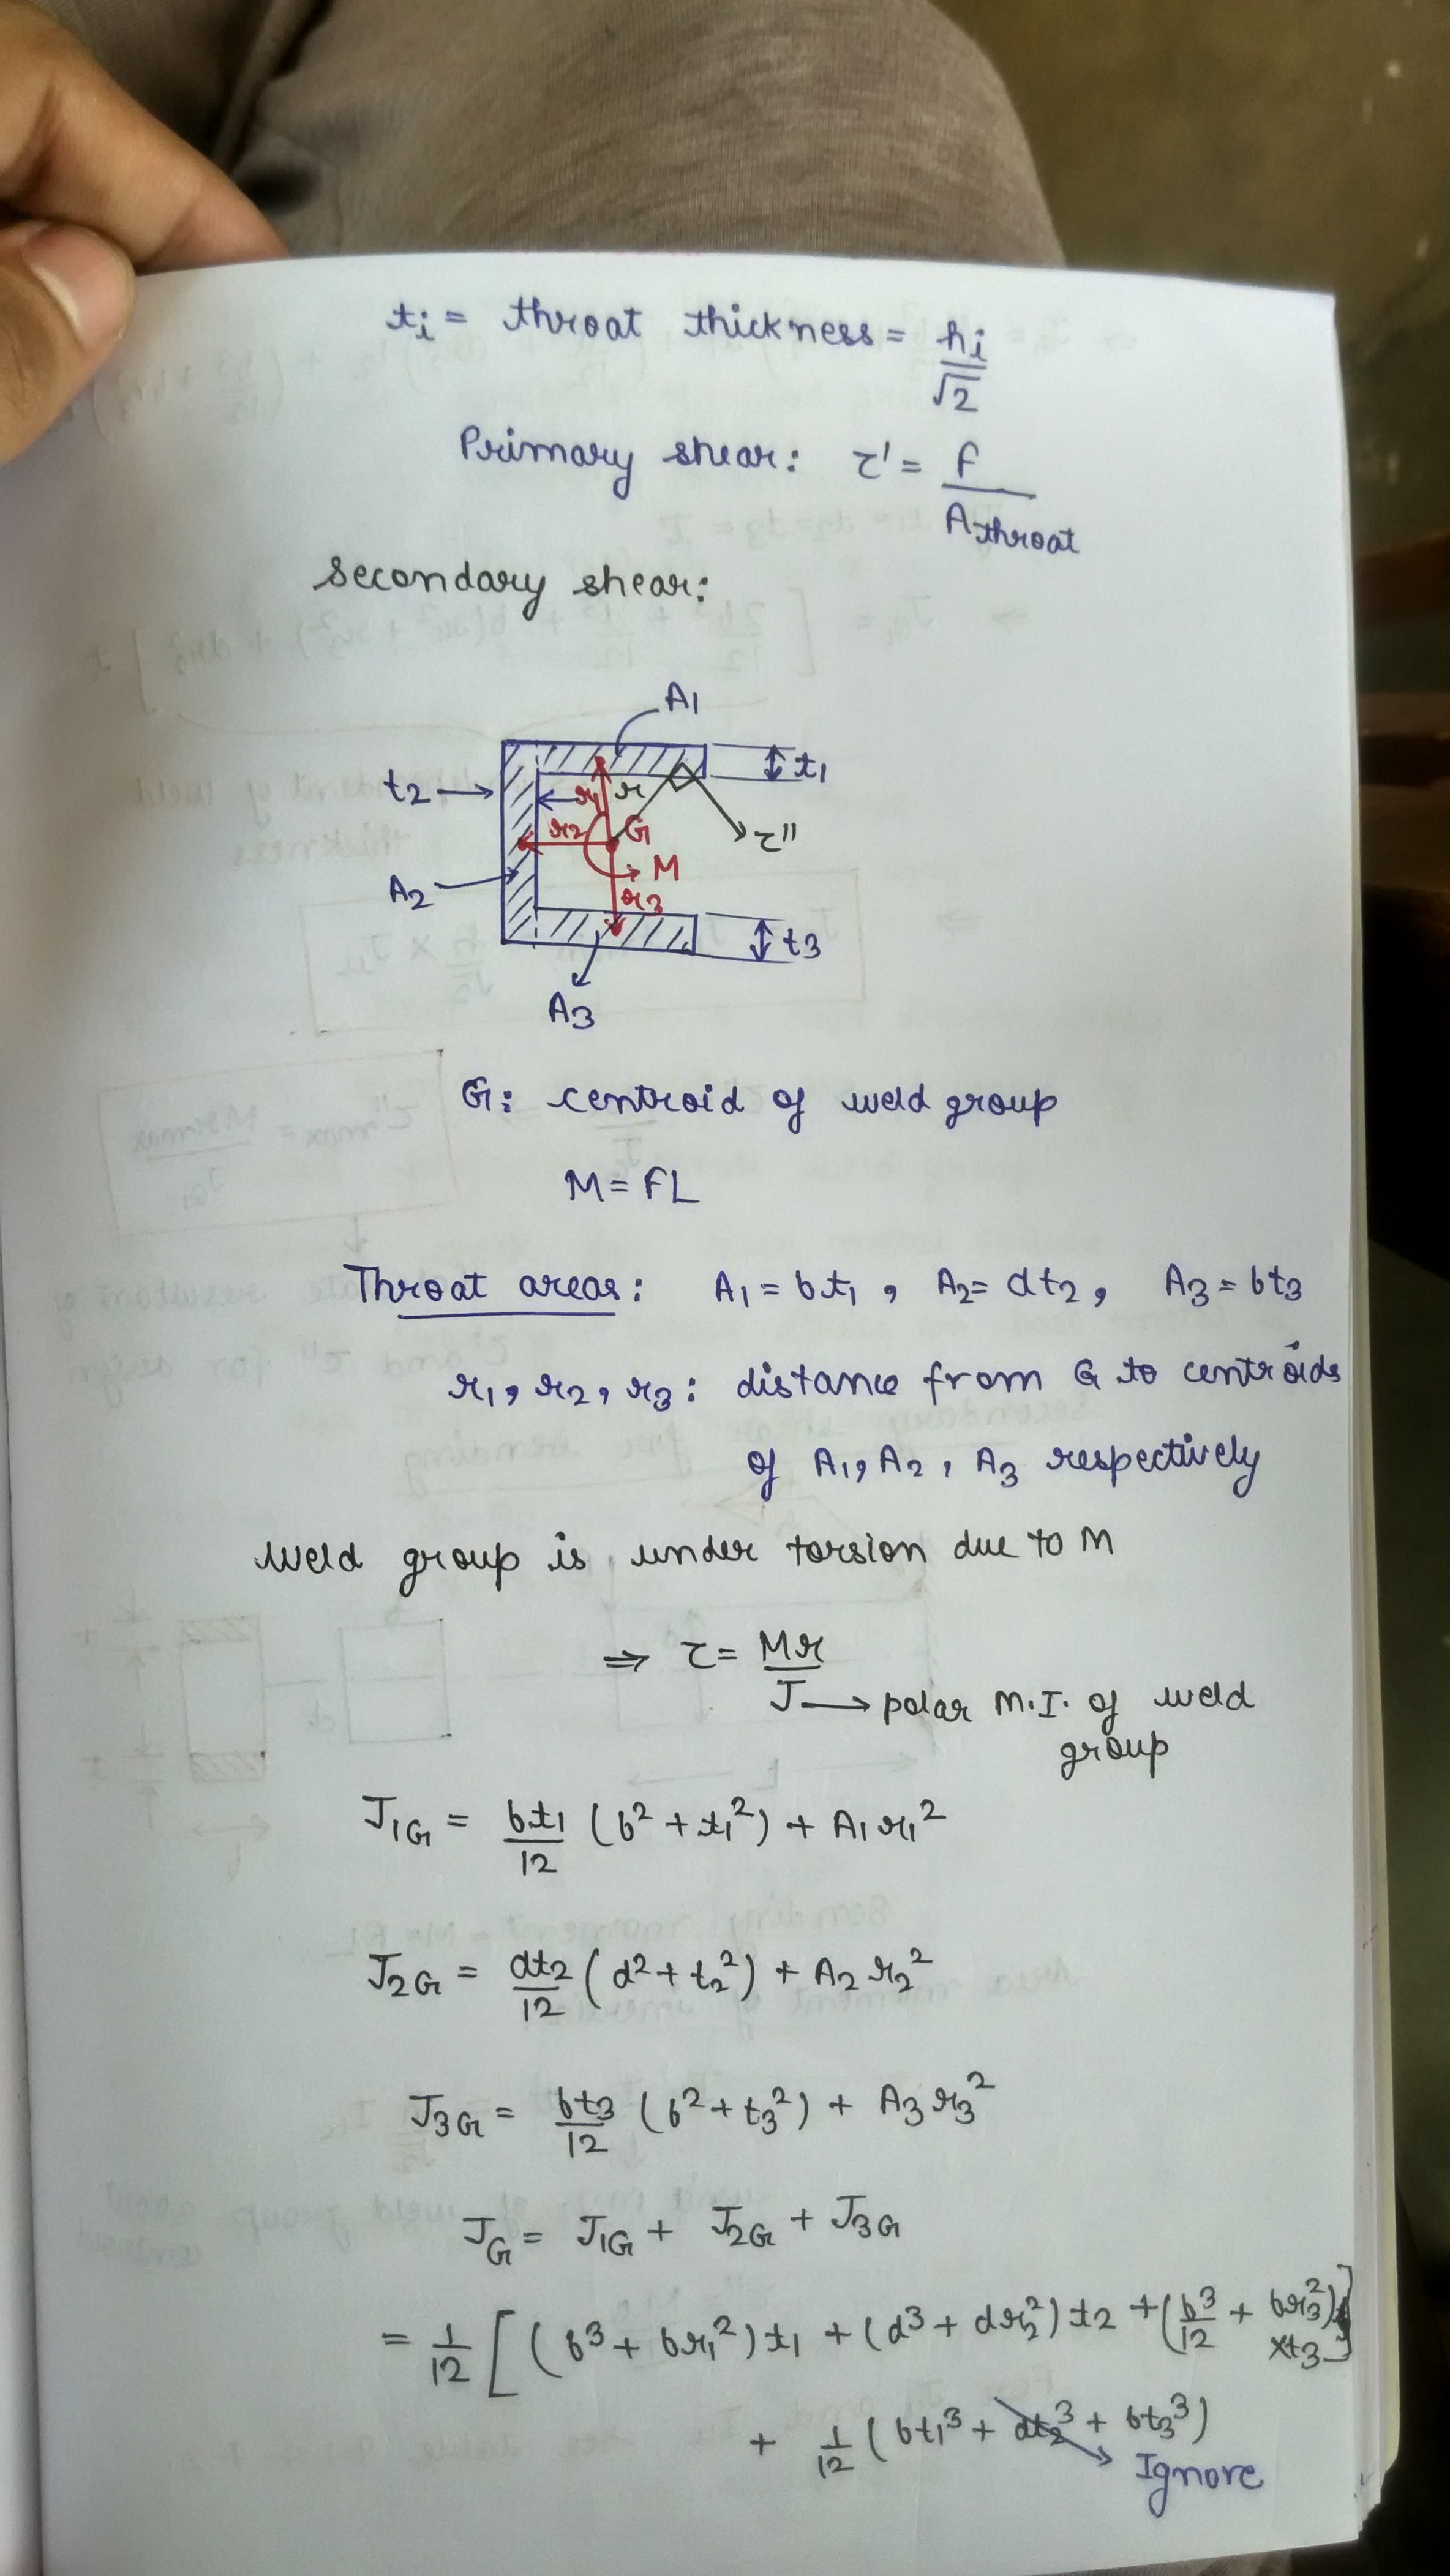 ti = throat thickness = hi/√2
Primary shear: τ' = F/Athroat
Secondary shear:
A1
t1
t2
r1
r
r2
G
τ''
M
A2
r3
t3
A3
G: centroid of weld group
M = FL
Throat areas: A1 = bt1, A2 = dt2, A3 = bt3
r1, r2, r3: distance from G to centroids
of A1, A2, A3 respectively
weld group is under torsion due to M
⇒ τ = Mr/J → polar M.I. of weld
group
J1G = bt1/12 (b² + t1²) + A1r1²
J2G = dt2/12 (d² + t2²) + A2r2²
J3G = bt3/12 (b² + t3²) + A3r3²
JG = J1G + J2G + J3G
= 1/12 [(b³ + br1²)t1 + (d³ + dr2²)t2 + (b³/12 + br3²)
×t3]
+ 1/12 (bt1³ + dt2³ + bt3³)
Ignore